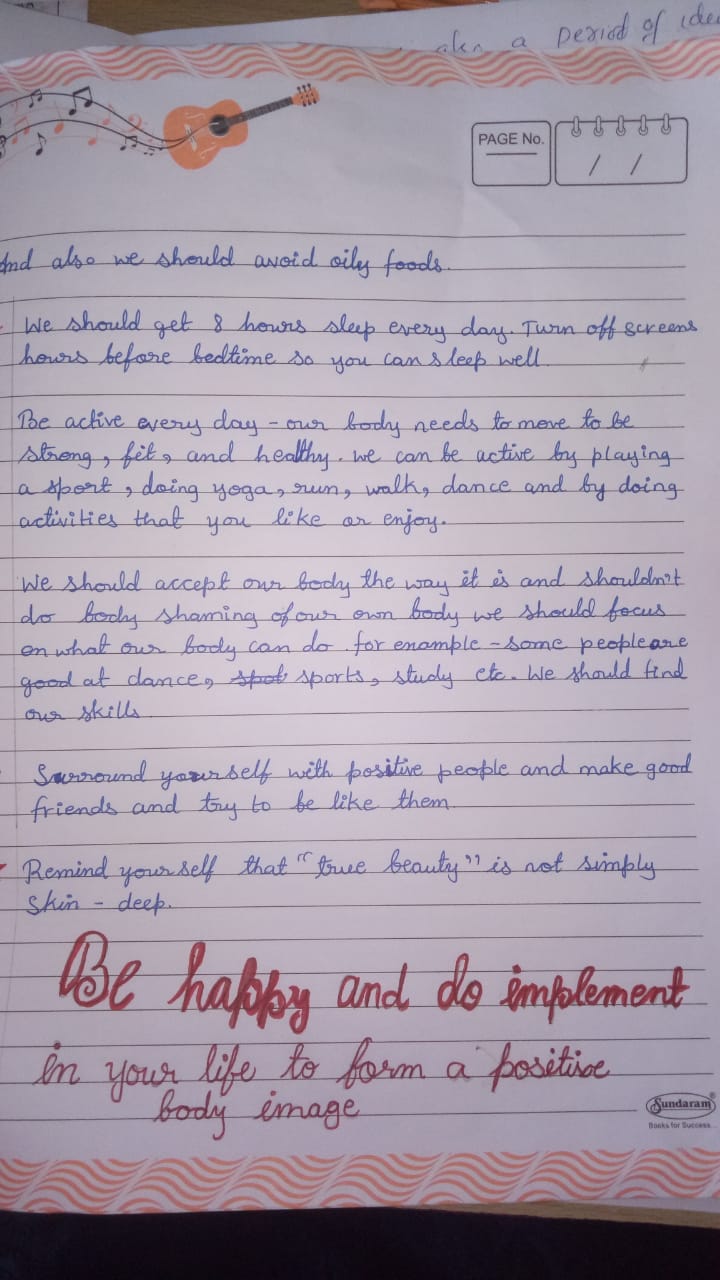 also a period of
PAGE No.
/ /
And also we should avoid oily foods.
We should get 8 hours sleep every day. Turn off screens
hours before bedtime so you can sleep well.
Be active every day - our body needs to move to be
strong, fit, and healthy. we can be active by playing
a sport, doing yoga, run, walk, dance and by doing
activities that you like or enjoy.
We should accept our body the way it is and shouldn't
do body shaming of our own body we should focus
on what our body can do. for enample - some people are
good at dance, spot sports, study etc. We should find
our skills
Surround yourself with positive people and make good
friends and try to be like them.
Remind yourself that "true beauty" is not simply
skin - deep.
Be happy and do implement
in your life to form a positive
body image
Sundaram®
Books for Success...